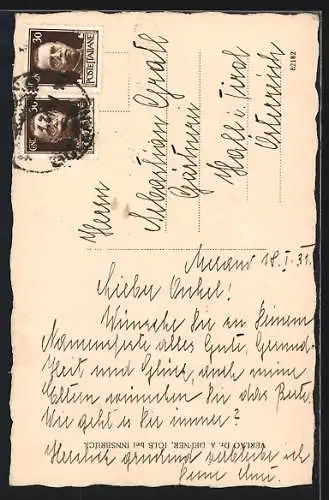 30
POSTE ITALIANE
30
Herrn
Sebastian Gratl
Gärtnerei
Hall i. Tirol
Österreich
62182
Merano 18. I. 31.
Lieber Onkel!
Wünsche Dir zu Deinem
Namensfeste alles Gute, Gesund-
heit und Glück, auch meine
Eltern wünschen Dir das Beste.
Wie geht es Dir immer?
Herzlich grüssend verbleibe ich
Deine
VERLAG Dr. A. DEFNER, IGLS bei INNSBRUCK.